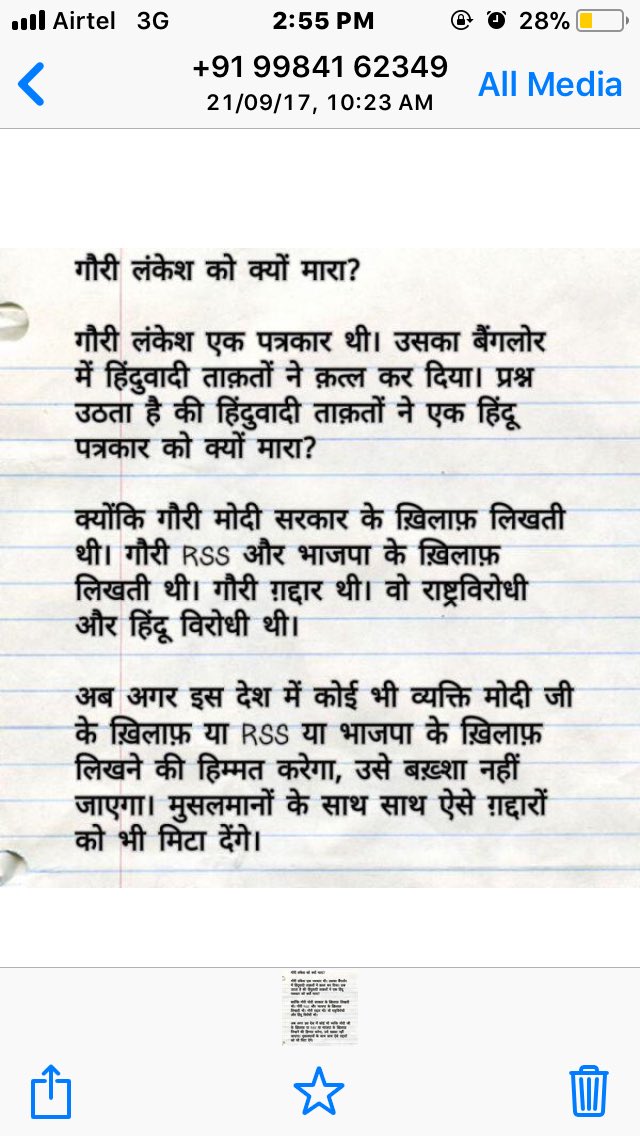 Airtel 3G 2:55 PM 28%
+91 99841 62349
21/09/17, 10:23 AM
All Media
गौरी लंकेश को क्यों मारा?
गौरी लंकेश एक पत्रकार थी। उसका बैंगलोर
में हिंदुवादी ताक़तों ने क़त्ल कर दिया। प्रश्न
उठता है की हिंदुवादी ताक़तों ने एक हिंदू
पत्रकार को क्यों मारा?
क्योंकि गौरी मोदी सरकार के ख़िलाफ़ लिखती
थी। गौरी RSS और भाजपा के ख़िलाफ़
लिखती थी। गौरी ग़द्दार थी। वो राष्ट्रविरोधी
और हिंदू विरोधी थी।
अब अगर इस देश में कोई भी व्यक्ति मोदी जी
के ख़िलाफ़ या RSS या भाजपा के ख़िलाफ़
लिखने की हिम्मत करेगा, उसे बख़्शा नहीं
जाएगा। मुसलमानों के साथ साथ ऐसे ग़द्दारों
को भी मिटा देंगे।